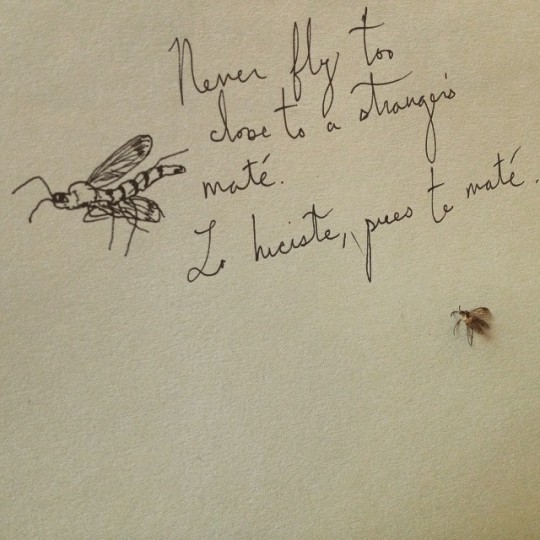 Never fly too
close to a stranger's
maté.
Lo hiciste, pues te maté.